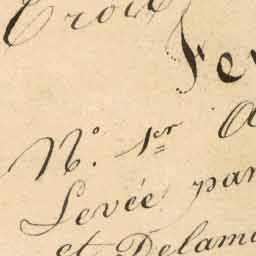 Croix
Fe
N.º 1er A
Levée par
et Delam